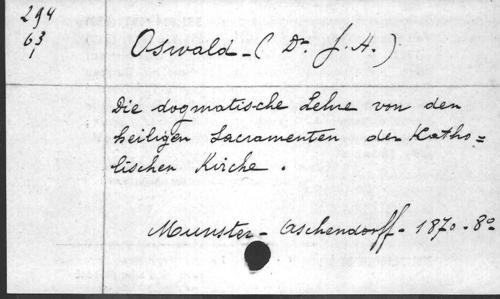 294
63
1
Oswald - ( Dr. J. H. )
Die dogmatische Lehre von den
heiligen Sacramenten der Katho=
lischen Kirche .
Munster - Aschendorff - 1870 - 8º